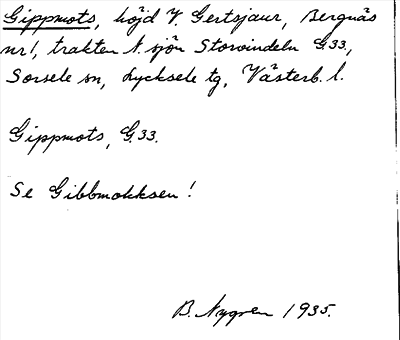 Gippmots, höjd V. Gertsjaur, Bergnäs
nr 1, trakten N. sjön Storvindeln G.33.,
Sorsele sn, Lycksele tg, Västerb. l.
Gippmots, G.33.
Se Gibbmokksen!
B. Nygren 1935.